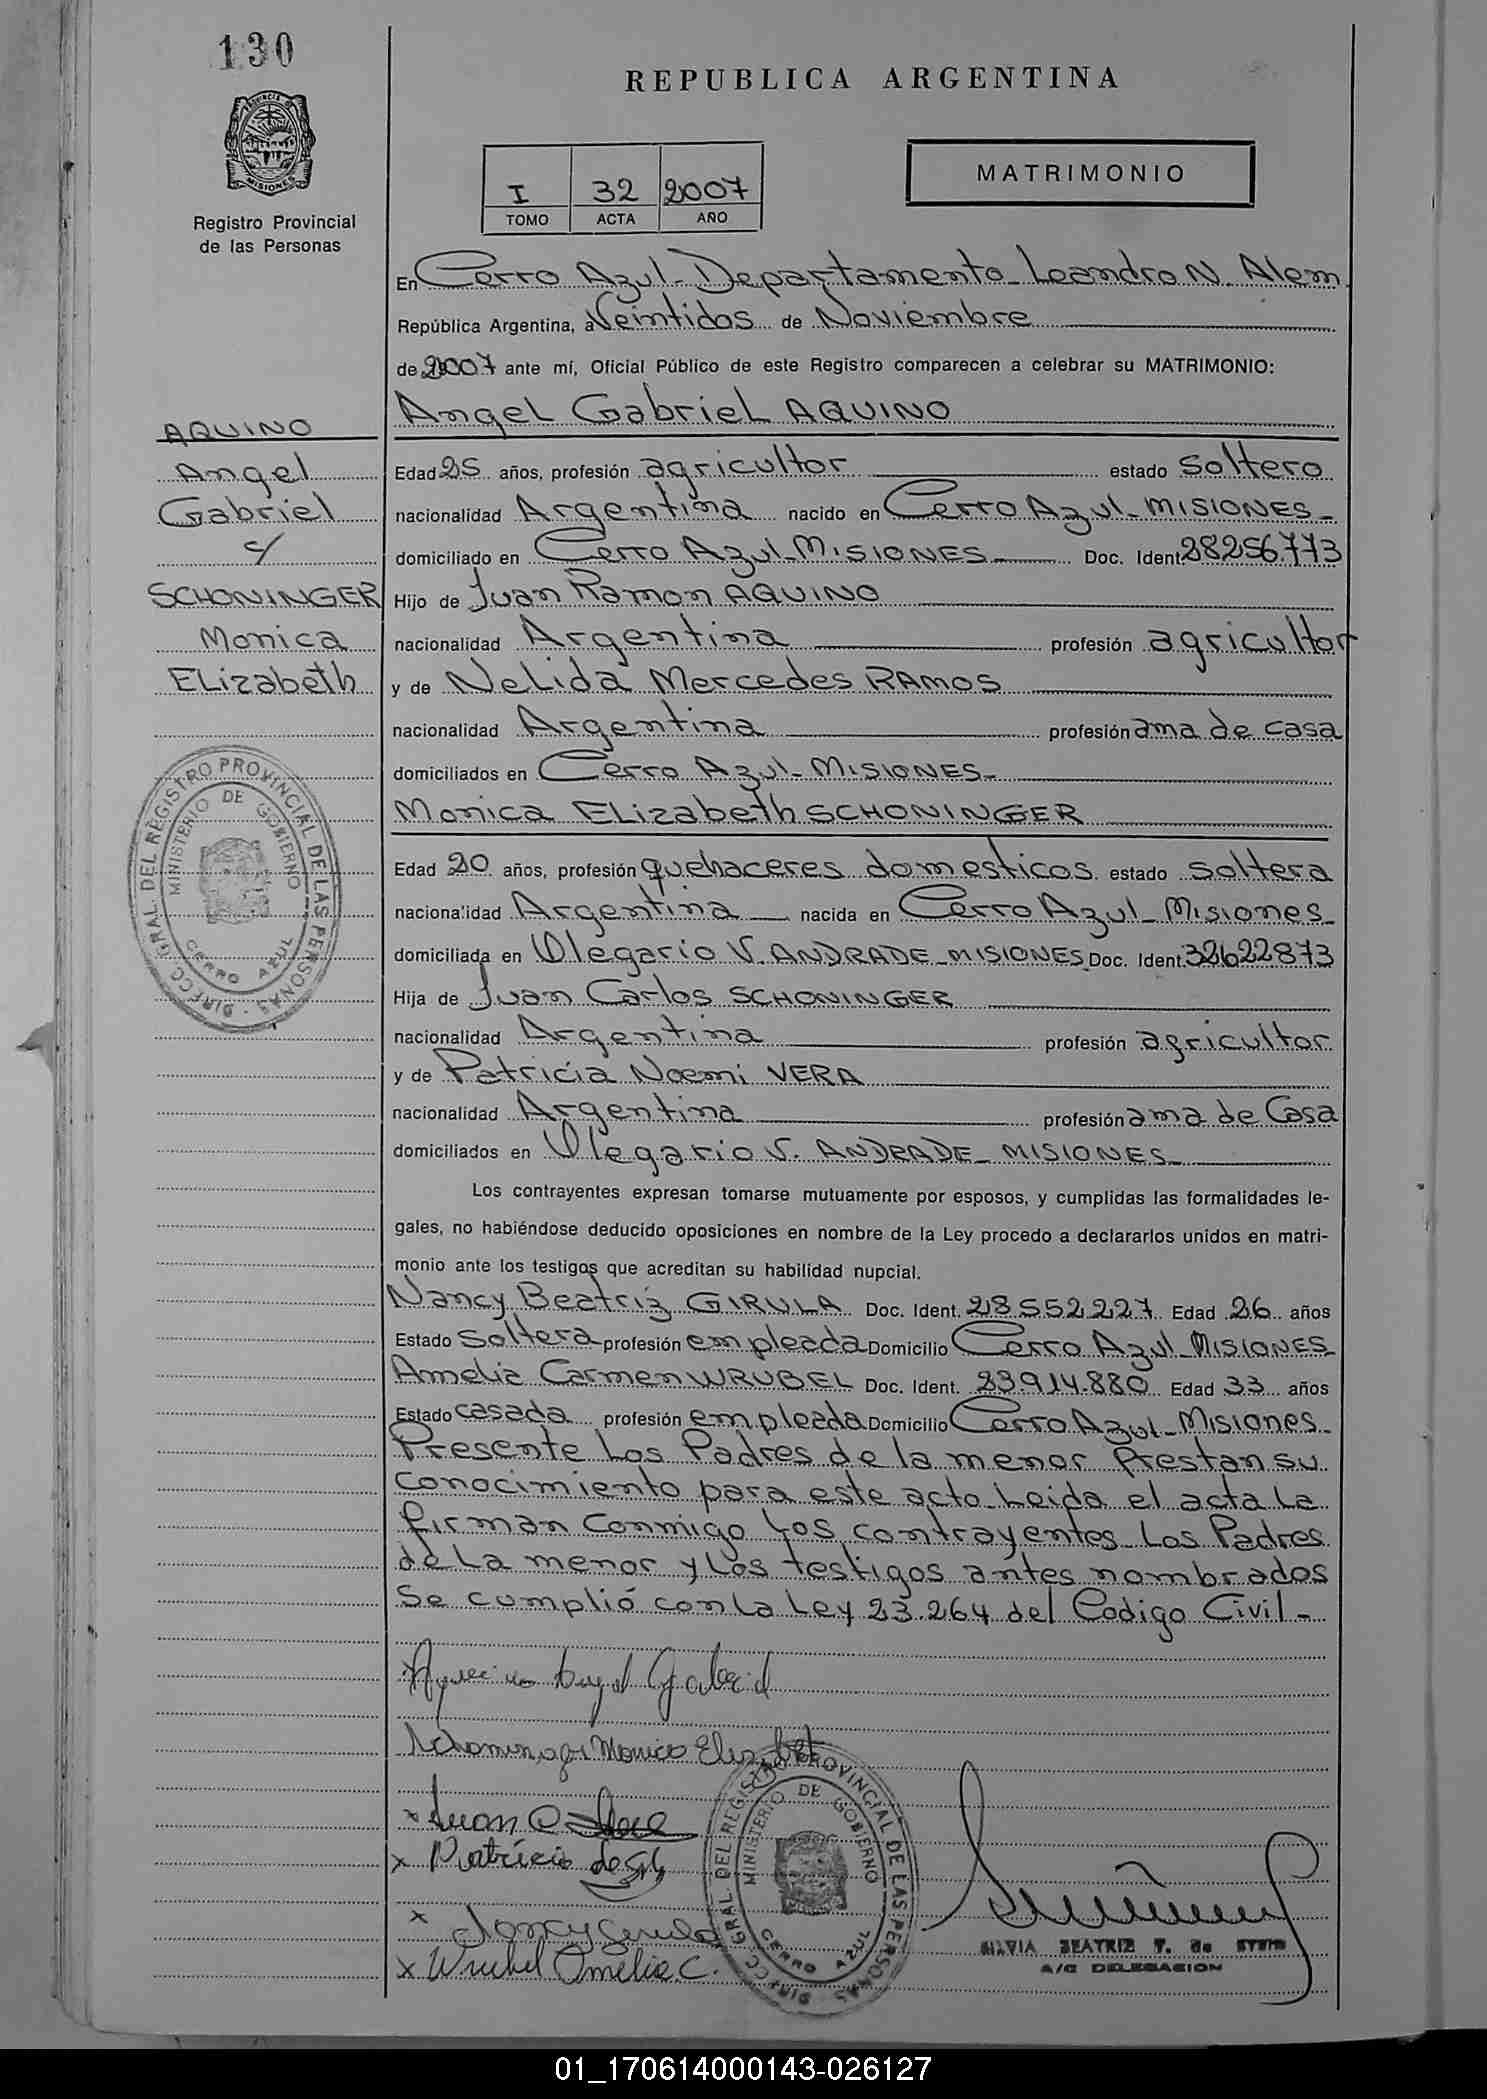 130
REPUBLICA ARGENTINA
PROVINCIA DE
MISIONES
Registro Provincial
de las Personas
I 32 2007
TOMO ACTA AÑO
MATRIMONIO
En Cerro Azul-Departamento-Leandro N. Alem
República Argentina, a Veintidos de Noviembre
de 2007 ante mí, Oficial Público de este Registro comparecen a celebrar su MATRIMONIO:
Angel Gabriel AQUINO
AQUINO
Angel
Gabriel
c/
SCHONINGER
Monica
Elizabeth
Edad 25 años, profesión agricultor estado Soltero
nacionalidad Argentina nacido en Cerro Azul-MISIONES-
domiciliado en Cerro Azul-MISIONES Doc. Ident. 28256.773
Hijo de Juan Ramon AQUINO
nacionalidad Argentina profesión agricultor
y de Nelida Mercedes RAMOS
nacionalidad Argentina profesión ama de casa
domiciliados en Cerro Azul-MISIONES-
Monica Elizabeth SCHONINGER
Edad 20 años, profesión quehaceres domesticos estado Soltera
nacionalidad Argentina nacida en Cerro Azul-Misiones-
domiciliada en Olegario V. ANDRADE-MISIONES Doc. Ident. 32622873
Hija de Juan Carlos SCHONINGER
nacionalidad Argentina profesión agricultor
y de Patricia Noemi VERA
nacionalidad Argentina profesión ama de Casa
domiciliados en Olegario V. ANDRADE-MISIONES-
Los contrayentes expresan tomarse mutuamente por esposos, y cumplidas las formalidades le-
gales, no habiéndose deducido oposiciones en nombre de la Ley procedo a declararlos unidos en matri-
monio ante los testigos que acreditan su habilidad nupcial.
Nancy Beatriz GIRULA Doc. Ident. 28552227 Edad 26 años
Estado Soltera profesión empleada Domicilio Cerro Azul-MISIONES-
Amelia Carmen WRUBEL Doc. Ident. 23.914.880 Edad 33 años
Estado casada profesión empleada Domicilio Cerro Azul-Misiones-
Presente Los Padres de la menor Prestan su
conocimiento para este acto-Leida el acta La
firman Conmigo Los contrayentes Los Padres
de La menor y Los testigos antes nombrados
Se cumplió con La Ley 23.264 del Codigo Civil-
Aquino Angel Gabriel
Schoninger Monica Elizabet
x Juan C
x Patricia de
x Nancy Girula
x Wrubel Amelia C.
DIREC. GRAL. DEL REGISTRO PROVINCIAL DE LAS PERSONAS
MINISTERIO DE GOBIERNO
CERRO AZUL
DIREC. GRAL. DEL REGISTRO PROVINCIAL DE LAS PERSONAS
MINISTERIO DE GOBIERNO
CERRO AZUL
SILVIA BEATRIZ T. de
A/C DELEGACION
01_170614000143-026127